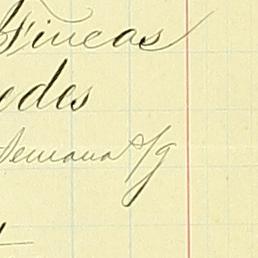 Fincas
edes
Semana S/g